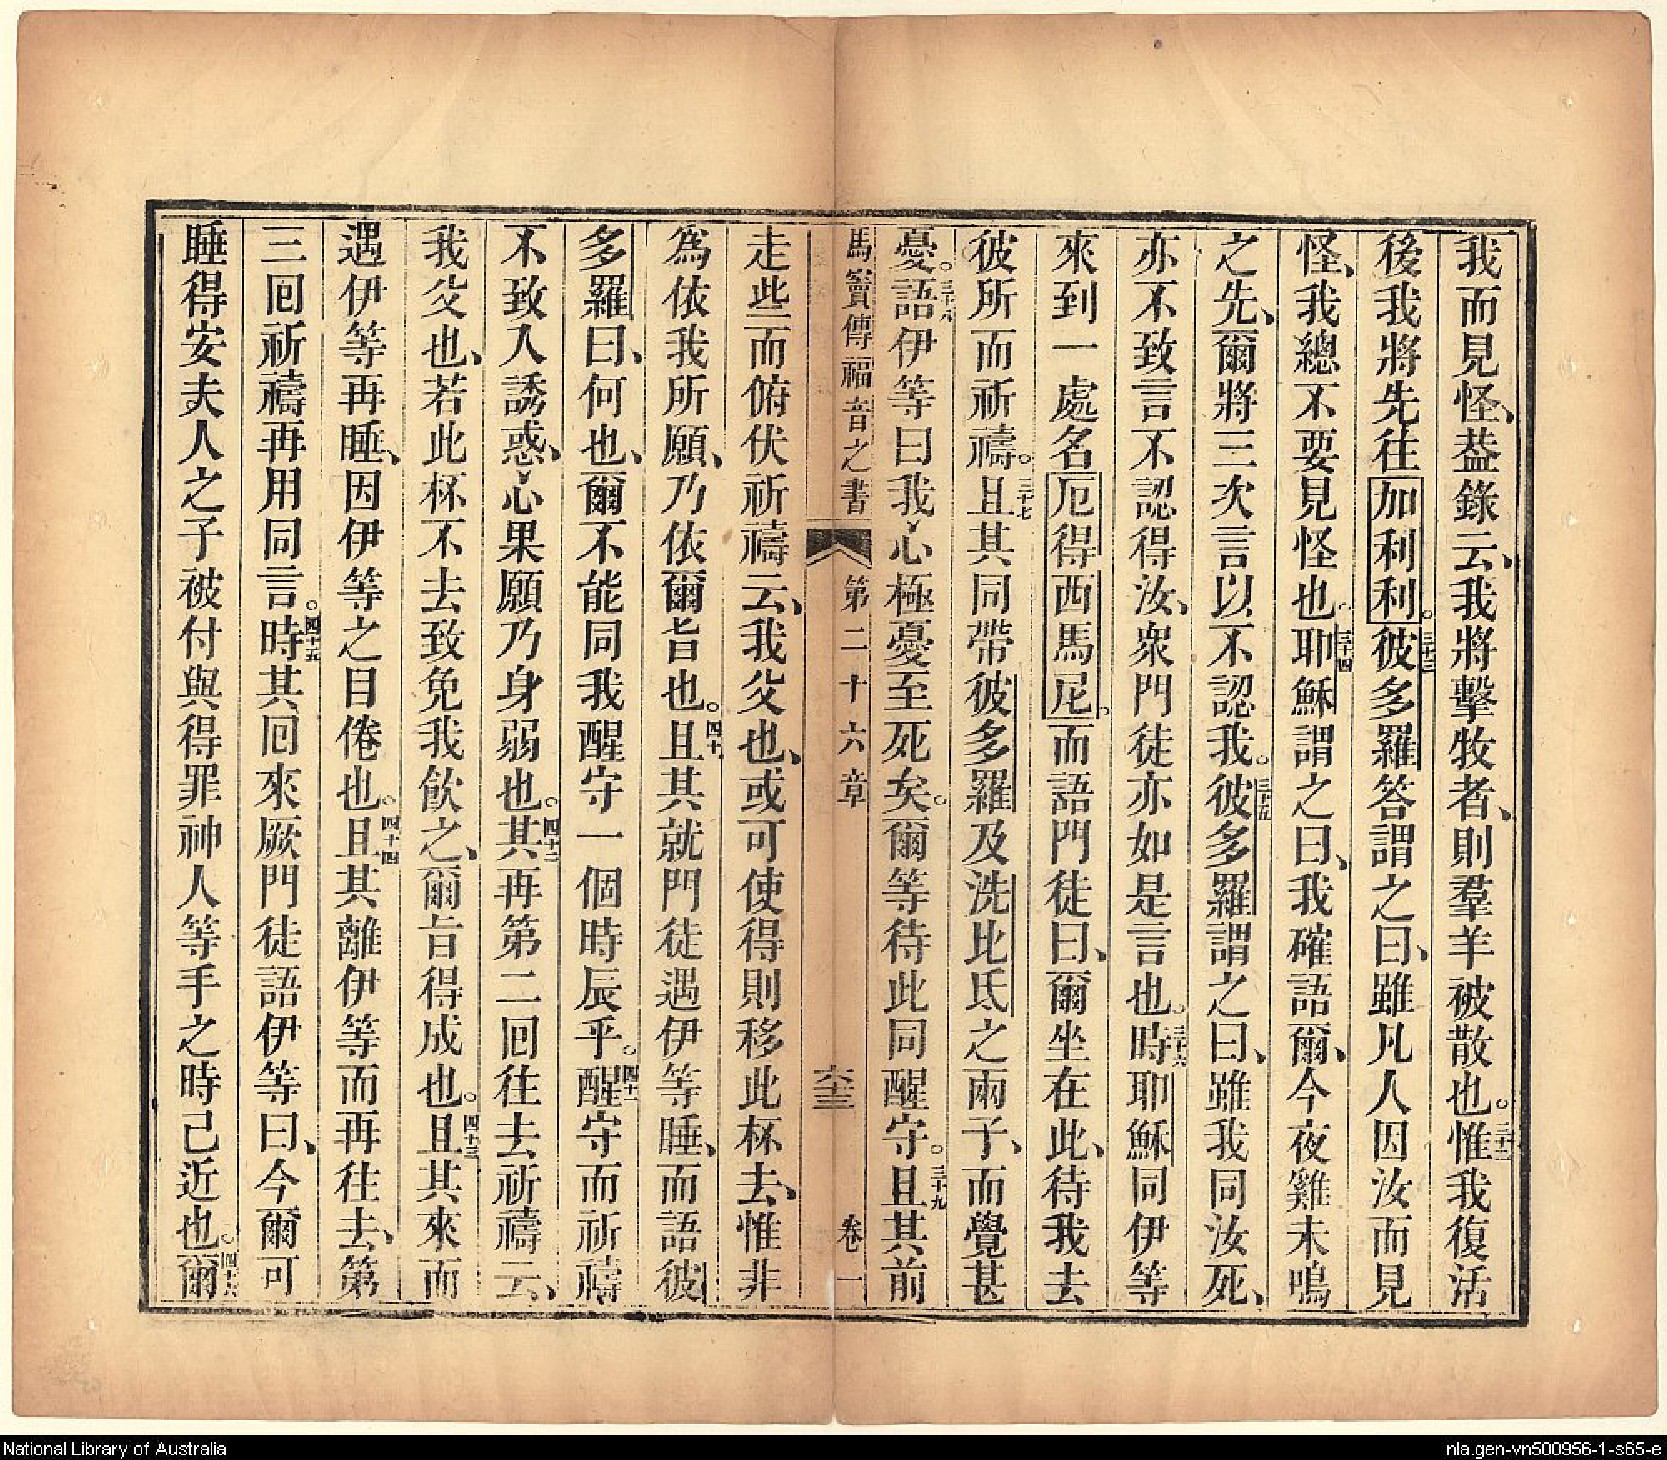 我而見怪、葢錄云、我將擊牧者、則羣羊被散也。三十二惟我復活
後我將先往加利利。三十三彼多羅答謂之曰、雖凡人因汝而見
怪、我總不要見怪也。三十四耶穌謂之曰、我確語爾、今夜雞未鳴
之先、爾將三次言以不認我。三十五彼多羅謂之曰、雖我同汝死、
亦不致言不認得汝、衆門徒亦如是言也。三十六時耶穌同伊等
來到一處名厄得西馬尼。而語門徒曰、爾坐在此、待我去
彼所而祈禱。三十七且其同帶彼多羅及洗比氐之兩子、而覺甚
憂。三十八語伊等曰我心極憂至死矣。爾等待此同醒守。三十九且其前
馬竇傳福音之書 第二十六章 六十三 卷一
走些而俯伏祈禱云、我父也、或可使得則移此杯去、惟非
為依我所願、乃依爾旨也。四十且其就門徒遇伊等睡、而語彼
多羅曰、何也、爾不能同我醒守一個時辰乎。四十一醒守而祈禱
不致入誘惑、心果願乃身弱也。四十二其再第二回往去祈禱云、
我父也、若此杯不去致免我飲之、爾旨得成也。四十三且其來而
遇伊等再睡、因伊等之目倦也。四十四且其離伊等而再往去、第
三回祈禱再用同言。四十五時其回來厥門徒語伊等曰、今爾可
睡得安夫人之子被付與得罪神人等手之時己近也。四十六爾
National Library of Australia
nla.gen-vn500956-1-s65-e